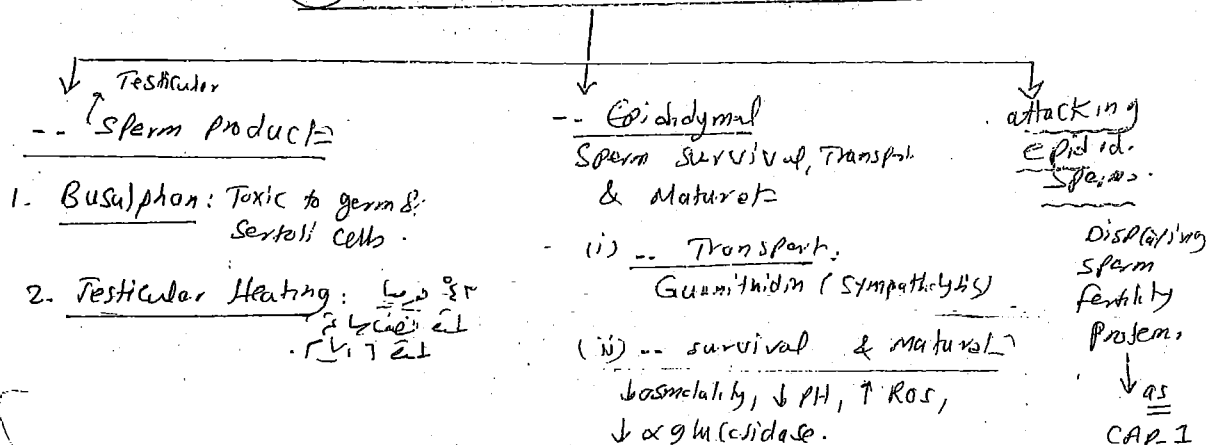 Testicular
-- Sperm product=
1. Busulphan: Toxic to germ &
Sertoli Cells.
2. Testicular Heating: ٤٣°
لمدة نصف ساعة
لمدة ٦ أيام.
-- Epididymal
Sperm Survival, Transport
& Maturat=
(i) -- Transport:
Guanithidin (Sympatholytic)
(ii) -- survival & maturat=
↓ osmolality, ↓ PH, ↑ ROS,
↓ α glucosidase.
attacking
epidid.
Sperms.
Displaying
sperm
fertility
Protein,
↓ as
CAP-1